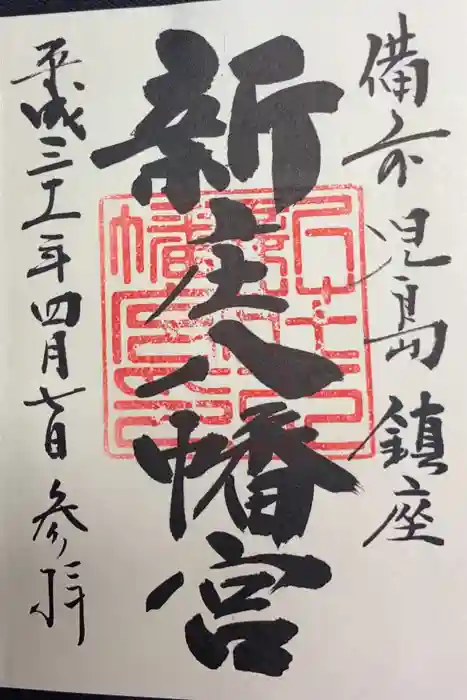 備前児島鎮座
新庄八幡宮
平成三十一年四月七日 参拝